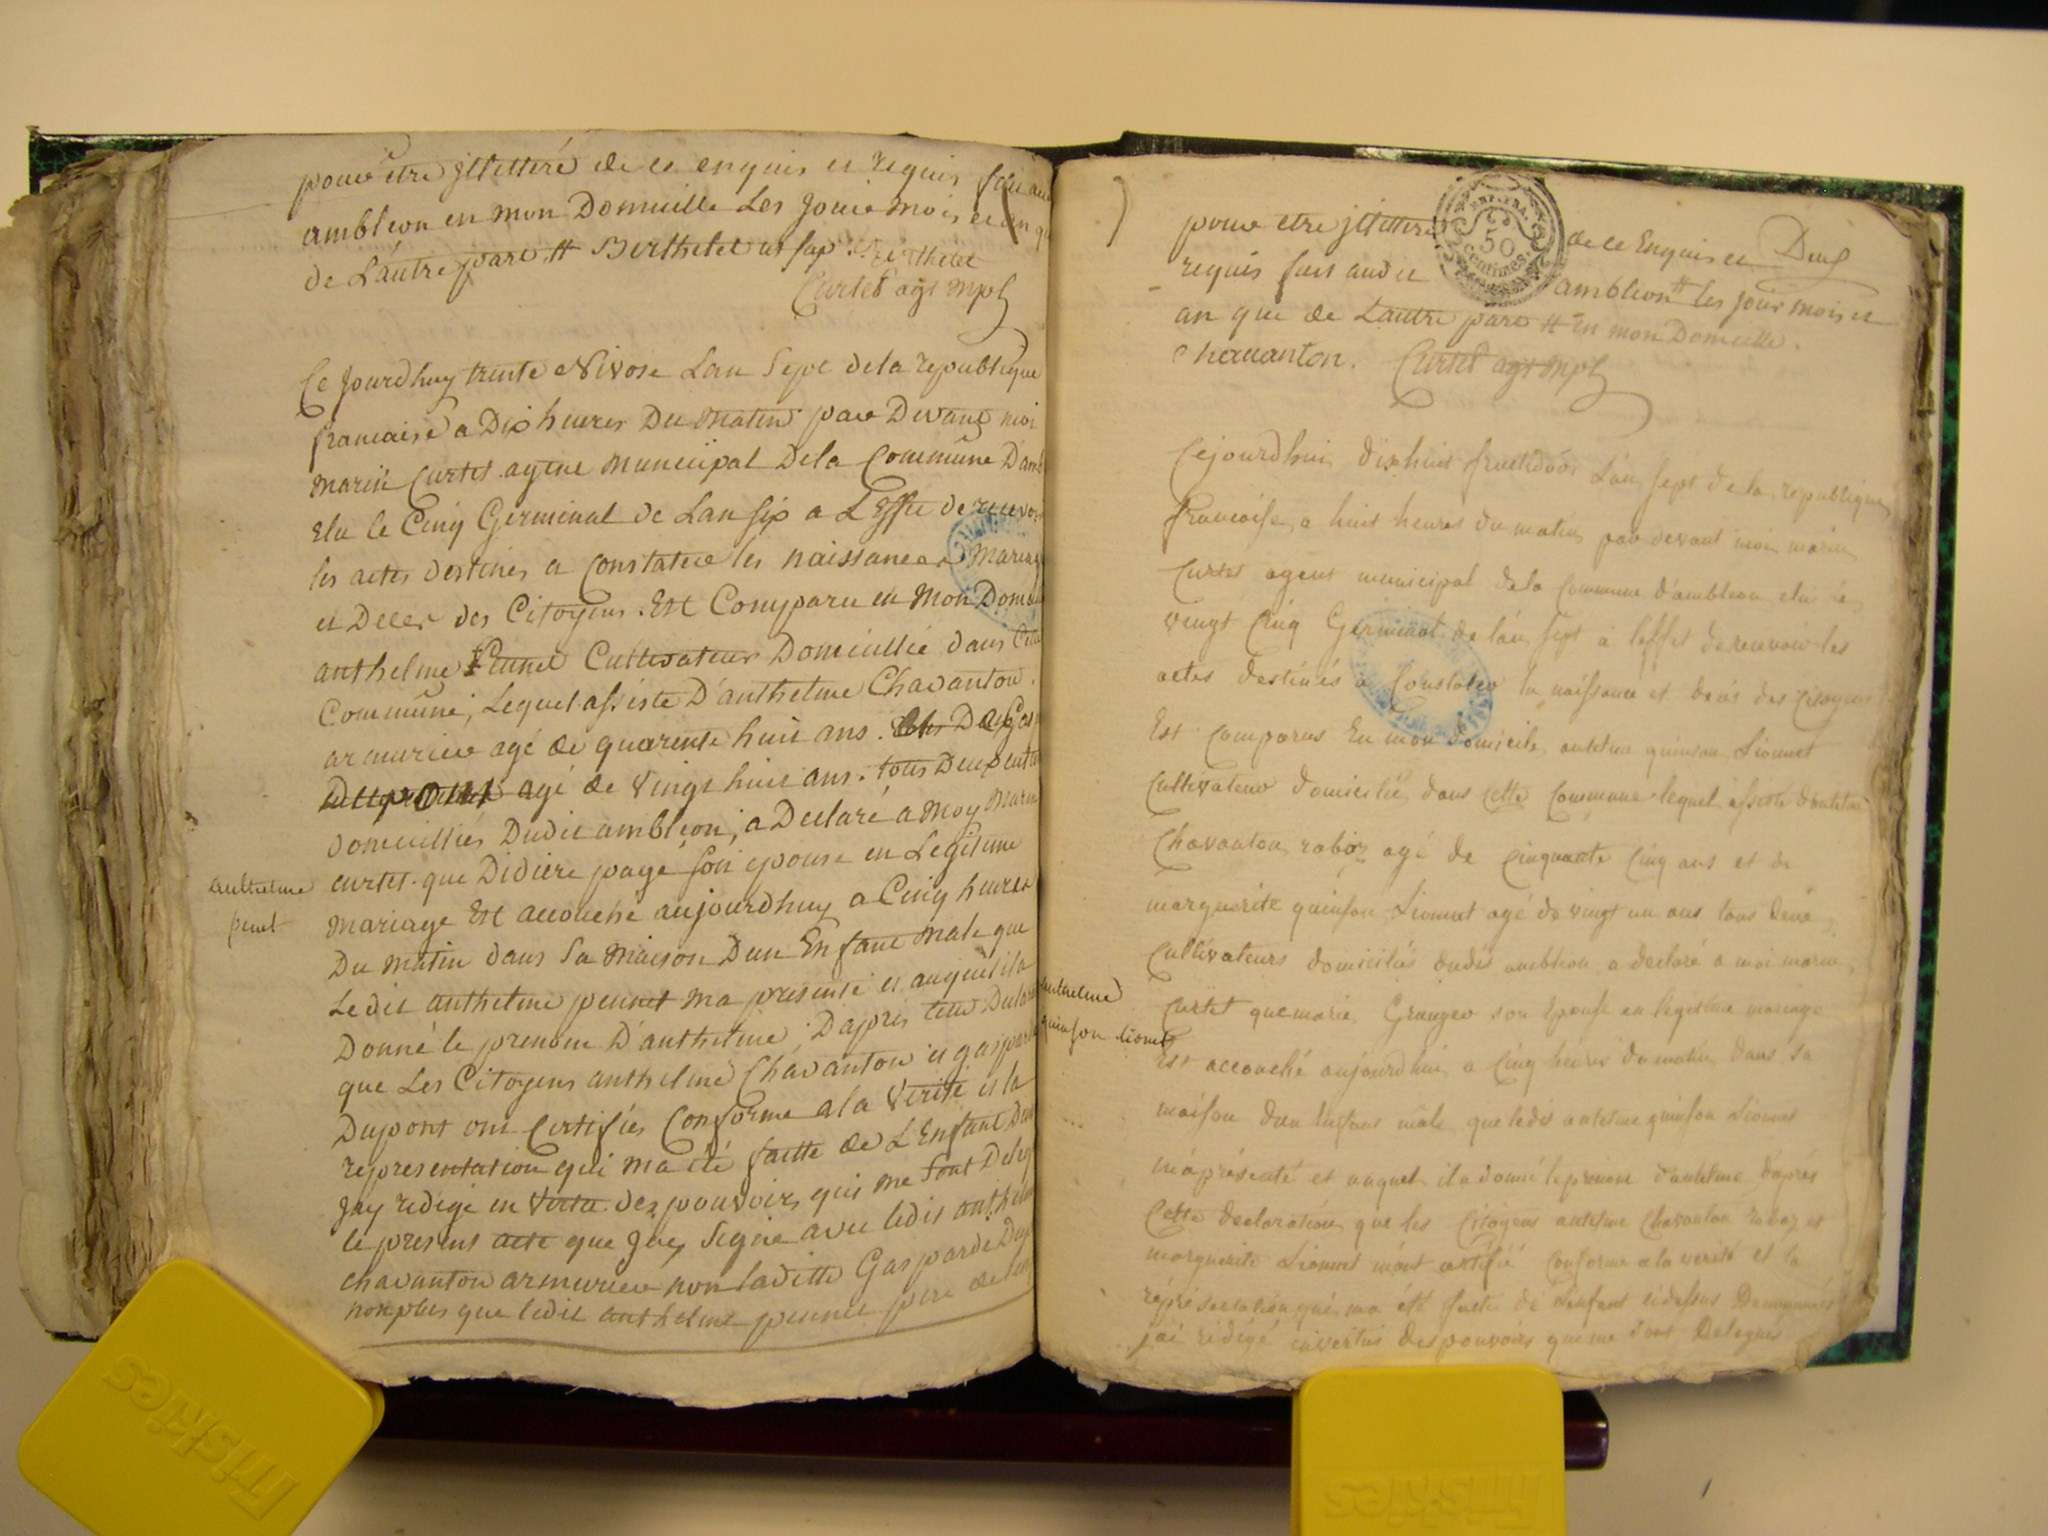 pour etre jllitteré de ce enquis et requis fait au
ambleon en mon Domicille Les Jour mois et an q
de L'autre part # Berthelet
Berthelet
Curtet agt mpl
Ce Jourdhuy trente Nivose Lan Sept dela republique
francaise a Dix heures Du matin par Devant moi
marin Curtet agent municipal Dela Commune D'amb
Elu le Cinq Germinal de Lan six a L'Effet de recevoir
les actes destinés a Constater les naissances Mariag
et Deces des Citoyens. Est Comparu en Mon Domi
anthelme Peunet Cultivateur Domicillié dans Cette
Commune, Lequel assisté D'anthelme Chavanton
armurier agé de quarente huit ans. De Gas
agé de Vingt huit ans. tous Deux
domicilliés Dudit ambleon, a Declaré a Moy Marin
anthelme
peunet
curtet que Didiere page son epouse en Legitime
mariage Est accouché aujourdhuy a Cinq heures
Du matin dans Sa Maison D'un Enfant Male que
Ledit anthelme peunet ma presenté et auquel il a
Donné le prenom D'anthelme, D'apres cette Declara
que Les Citoyens anthelme Chavanton et gaspard
Dupont ont Certifiés Conforme a la Verité et la
representation qui ma eté faitte de L'Enfant Den
Jay redigé en Vertu des pouvoirs qui me Sont Deleg
le present acte que Jay Signé avec ledit anthelm
chavanton armurier non laditte Gasparde Dup
non plus que ledit anthelme peunet pere de lenf
pour etre jllitteré
de ce Enquis et Deux
requis fait audit
ambleon # les jour mois et
REP. FRA.
50
centimes
an que de Lautre part # En mon Domicille.
Chavanton. Curtet agt mpl
Cejourdhui dixhuit fructidor L'an sept de la republique
francoise, a huit heures du matin par devant moi marin
Curtet agent municipal dela Commune d'ambleon elu le
vingt Cinq Germinal de l'an sept a l'effet de recevoir les
actes destinés a Constater la naissance et deces des Citoyens
Est Comparus En mon domicile antelme quinson Lionnet
Cultivateur domicilié dans cette Commune lequel assisté d'antelme
Chavanton roboz agé de cinquante Cinq ans et de
marguerite quinson Lionnet agé de vingt un ans tous deux
Cultivateurs domiciliés dudit ambleon a declaré a moi marin
anthelme
quinson lionnet
Curtet que marie Granger son Epouse en legitime mariage
Est accouché aujourdhui a Cinq heures du matin dans sa
maison d'un Enfant mâle que ledit antelme quinson Lionnet
m'a présenté et auquel il a donné le prenom d'antelme d'aprés
Cette declaration que les Citoyens antelme Chavanton robaz et
marguerite Lionnet m'ont certifié Conforme a la verité et la
réprésentation qui ma été faite de l'enfant cidessus Denommé
j'ai rédigé envertus des pouvoirs qui me sont Delegués
friskies
friskies